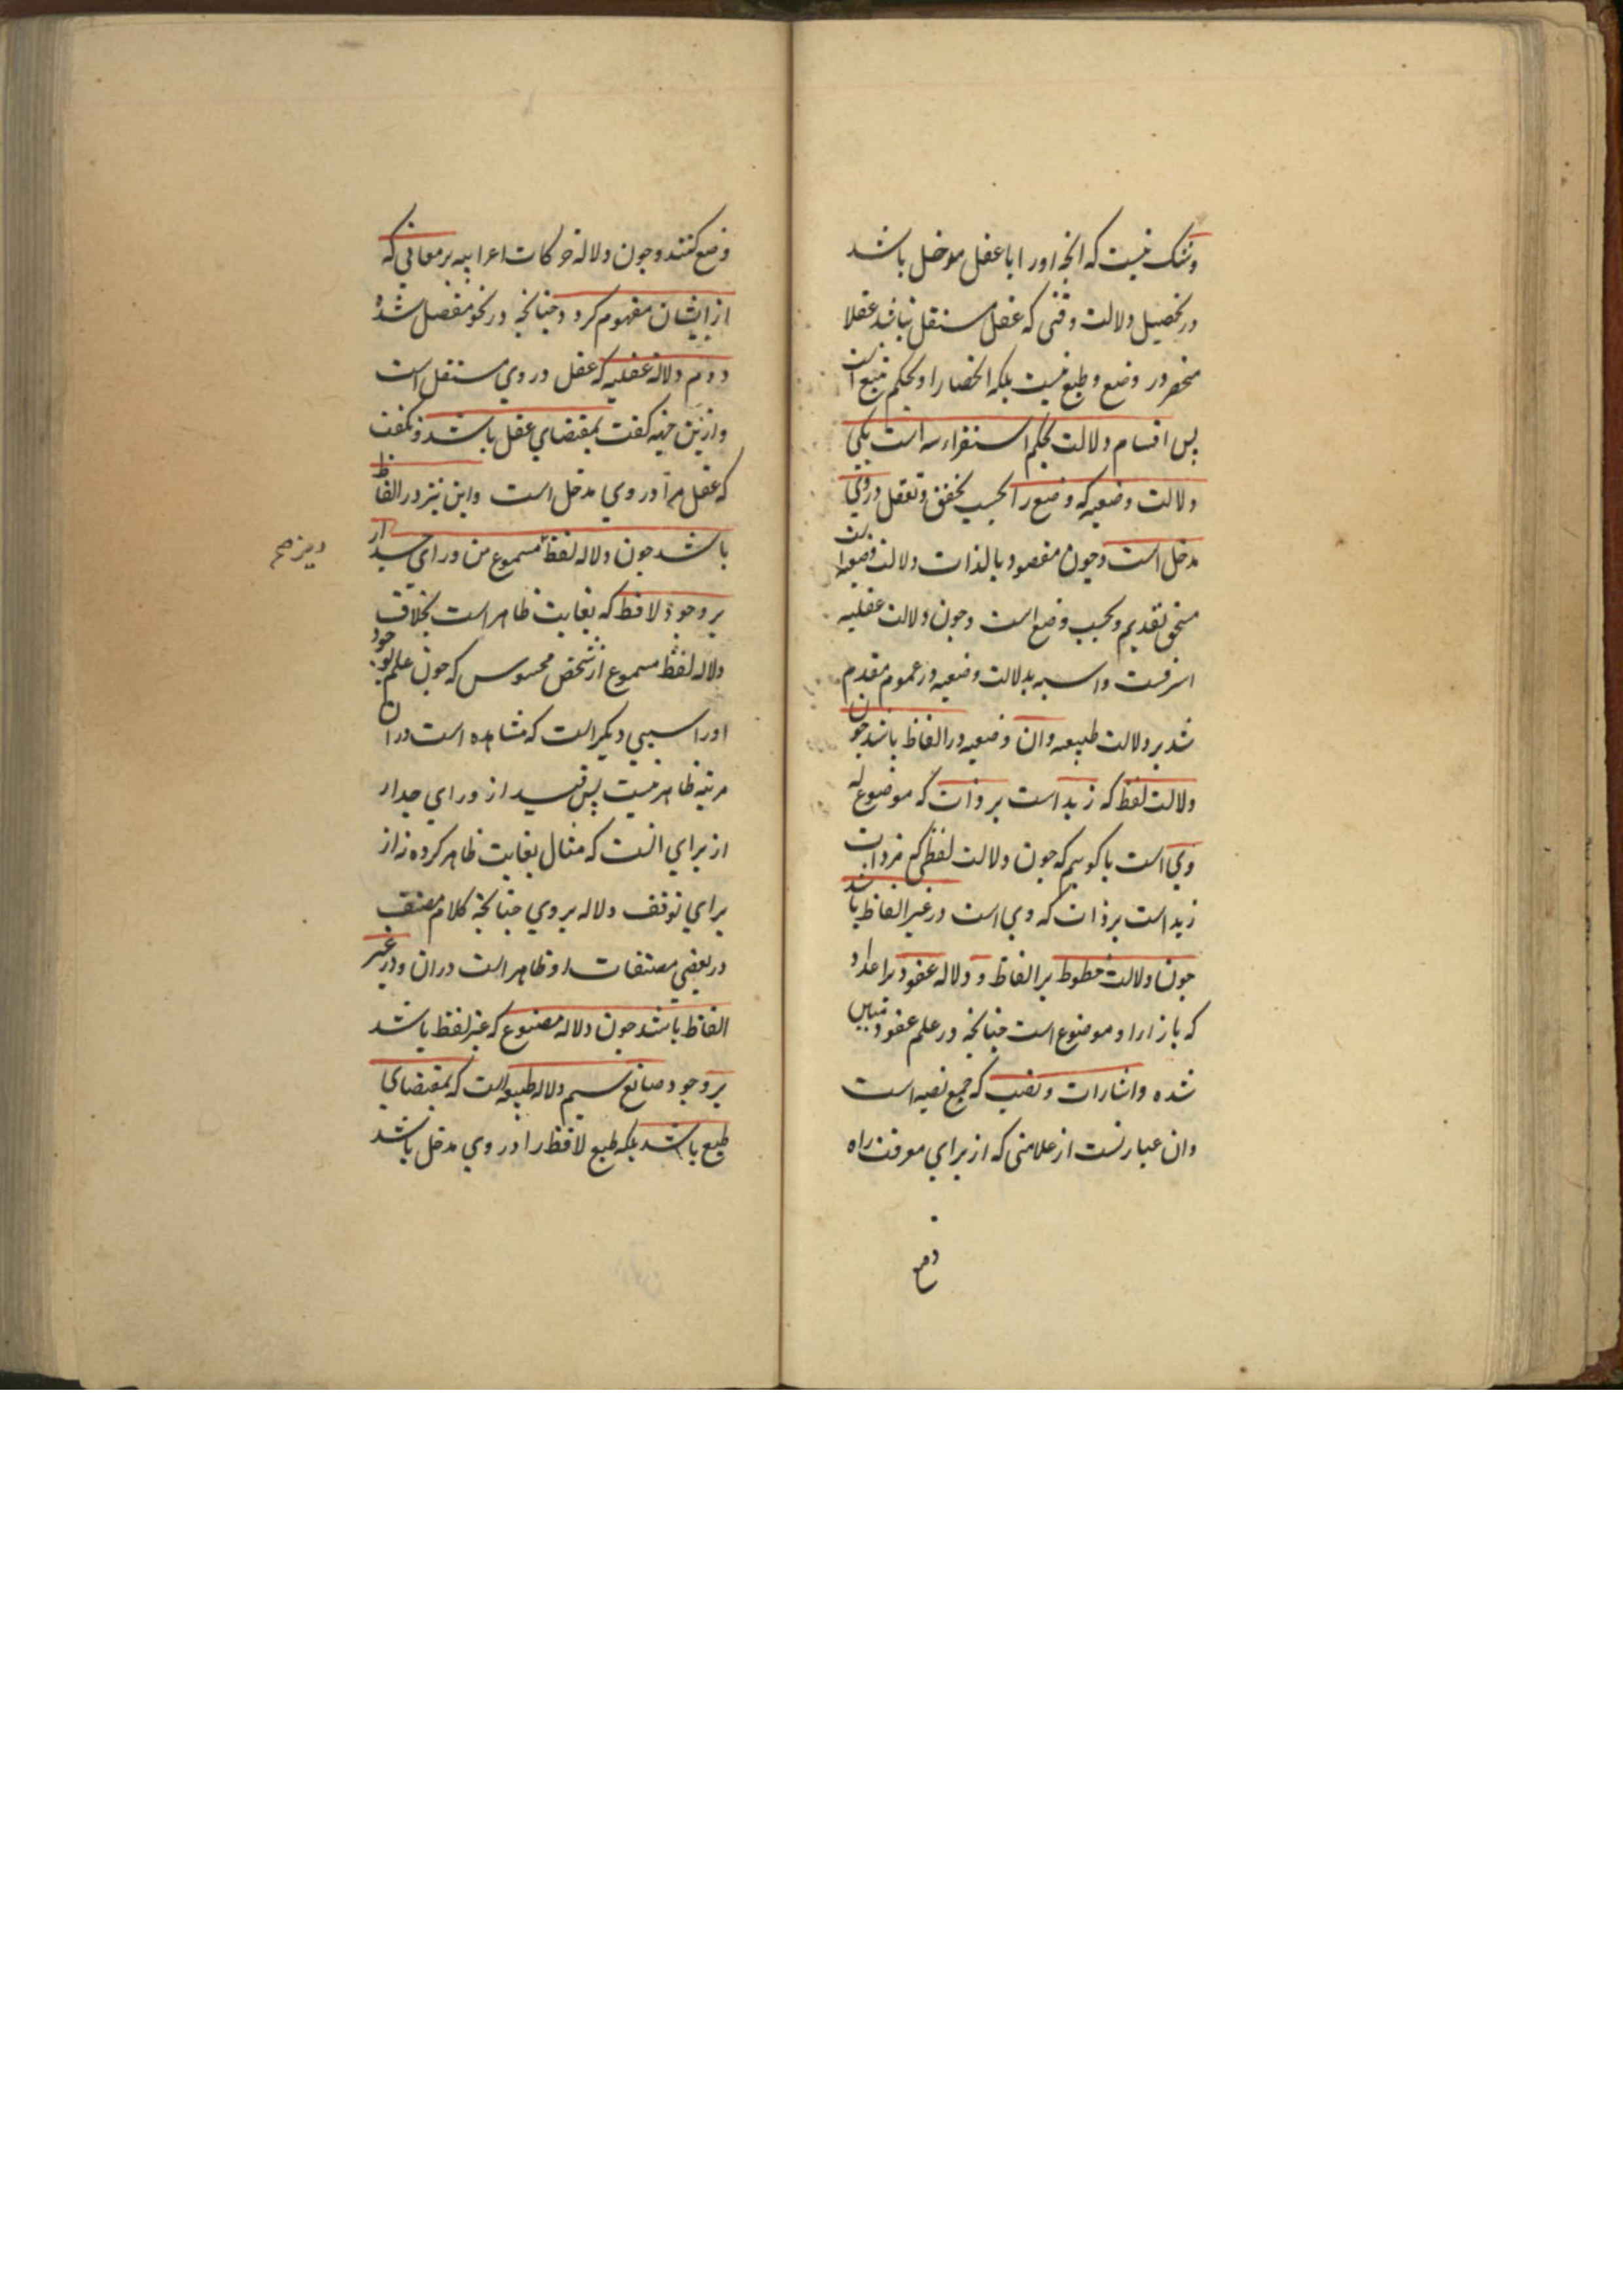 وشک نیست که انچه اورا با عقل موخل باشد
در تحصیل دلالت وقتی که عقل مستقل نباشد عقلا
منحصر در وضع و طبع نیست بلکه انحصار او بحکم تتبع است
پس اقسام دلالت بحکم استقراء سه است یکی
دلالت وضعیه که وضع را بحسب تحقق و تعقل در وی
مدخل است و چون مقصود بالذات دلالت وضعیه است
مستحق تقدیم بحسب وضع است و چون دلالت عقلیه
اشرفست واسبه بدلالت وضعیه در عموم مقدم
شد بر دلالت طبیعیه وان وضعیه در الفاظ باشد چون
دلالت لفظ که زید است بر ذات که موضوع له
وی است یا کوییم که چون دلالت لفظی که مرد است
زید است بر ذات که وی است در غیر الفاظ باشد
چون دلالت خطوط بر الفاظ و دلاله عقود بر اعداد
که بازاء او موضوع است چنانچه در علم عقود مبین
شده و اشارات و نصب که جمع نصبه است
وان عبارتست از علامتی که از برای معرفت راه
وضع
وضع کنند و چون دلاله حرکات اعرابیه بر معانی که
از ایشان مفهوم کردد چنانچه در نحو مفصل شده
دویم دلاله عقلیه که عقل در وی مستقل است
وازین جهة کفت بمقتضای عقل باشد و نکفت
که عقل را در وی مدخل است واین نیز در الفاظ
باشد چون دلاله لفظ مسموع من ورای جدار
بر وجود لافظ که بغایت ظاهر است بخلاف
دلاله لفظ مسموع از شخص محسوس که چون علم بوجود
اورا سببی دیکر است که مشاهده است در ان
مرتبه ظاهر نیست پس قید از ورای جدار
از برای انست که مثال بغایت ظاهر کرده نه از
برای توقف دلاله بر وی چنانچه کلام مصنف
در بعضی مصنفات او ظاهر است در ان و در غیر
الفاظ باشد چون دلاله مصنوع که غیر لفظ باشد
بر وجود صانع سیم دلاله طبیعیه است که بمقتضای
طبع باشد بلکه طبع لافظ را در وی مدخل باشد